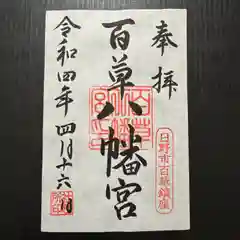 奉拝
百草八幡宮
令和四年四月十六日
日野市百草鎮座